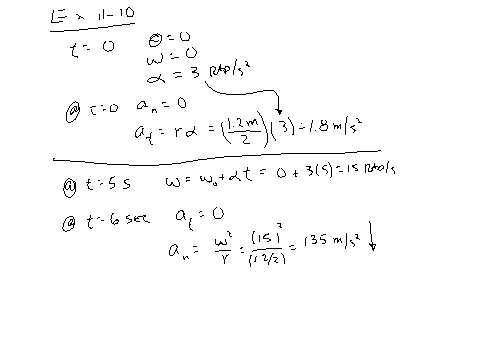 Ex 11-10
t = 0 θ = 0
ω = 0
α = 3 RAD/s²
@ t=0 aₙ = 0
aₜ = rα = (1.2m/2)(3) = 1.8 m/s²
@ t = 5 s ω = ω₀ + αt = 0 + 3(5) = 15 RAD/s
@ t = 6 sec aₜ = 0
aₙ = ω²/r = (15)²/(1.2/2) = 135 m/s² ↓